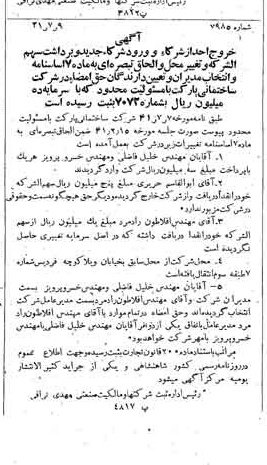 رئیس اداره ثبت شرکتها و مالکیت صنعتی مهدی نراقی
۳۸۲۲ پ
شماره ۷۹۸۵
۳۱٫۷٫۹
آگهی
خروج احد از شرکاء و ورود شرکاء جدید و برداشت سهم
الشرکه و تغییر محل و الحاق تبصره‌ای به ماده ۷ اساسنامه
و انتخاب مدیران و تعیین دارندگان حق امضاء در شرکت
ساختمانی پارت با مسئولیت محدود که با سرمایه ده
میلیون ریال بشماره ۷۰۷۳ ثبت رسیده است
طبق نامه مورخه ۴۱٫۷٫۷ شرکت ساختمانی پارت با مسئولیت
محدود پیوست صورت جلسه مورخه ۴۱٫۲٫۱۵ ضمن الحاق تبصره‌ای به
ماده ۷ اساسنامه تغییرات زیر در شرکت بعمل آمده است
۱ـ آقایان مهندس خلیل فاضلی و مهندس خسرو پرویز هریک
با پرداخت مبلغ سه میلیون ریال شرکت وارد گردیدند
۲ـ آقای ابوالقاسم حریری مبلغ پنج میلیون ریال سهم الشرکه
خود را نقداً دریافت و از شرکت خارج گردیده و دیگر حق هیچگونه سمت و حقوقی
در شرکت مزبور ندارد
۳ـ آقای مهندس افلاطون رادمرد مبلغ یک میلیون ریال از سهم
الشرکه خود را نقداً دریافت داشته که در اصل سرمایه تغییری حاصل
نگردیده است
۴ـ محل شرکت از محل سابق بخیابان ویلا کوچه فردیس شماره
۷ طبقه سوم انتقال یافته است
۵ـ آقایان مهندس خلیل فاضلی و مهندس خسرو پرویز بسمت
مدیران شرکت و آقای مهندس افلاطون رادمرد بسمت مدیر عامل شرکت
انتخاب گردیده‌اند و حق امضاء در تمام موارد با آقای مهندس افلاطون راد
مرد مدیر عامل باتفاق یکی از دو نفر آقایان مهندس خلیل فاضلی یا مهندس
خسرو پرویز با مهر شرکت خواهد بود
مراتب باستناد ماده ۲۰۰ قانون تجارت بثبت رسیده و جهت اطلاع عموم
در روزنامه رسمی کشور شاهنشاهی و یکی از جراید کثیر الانتشار
یومیه مرکز آگهی میشود
رئیس اداره ثبت شرکتها و مالکیت صنعتی مهدی نراقی
۴۸۱۷ پ